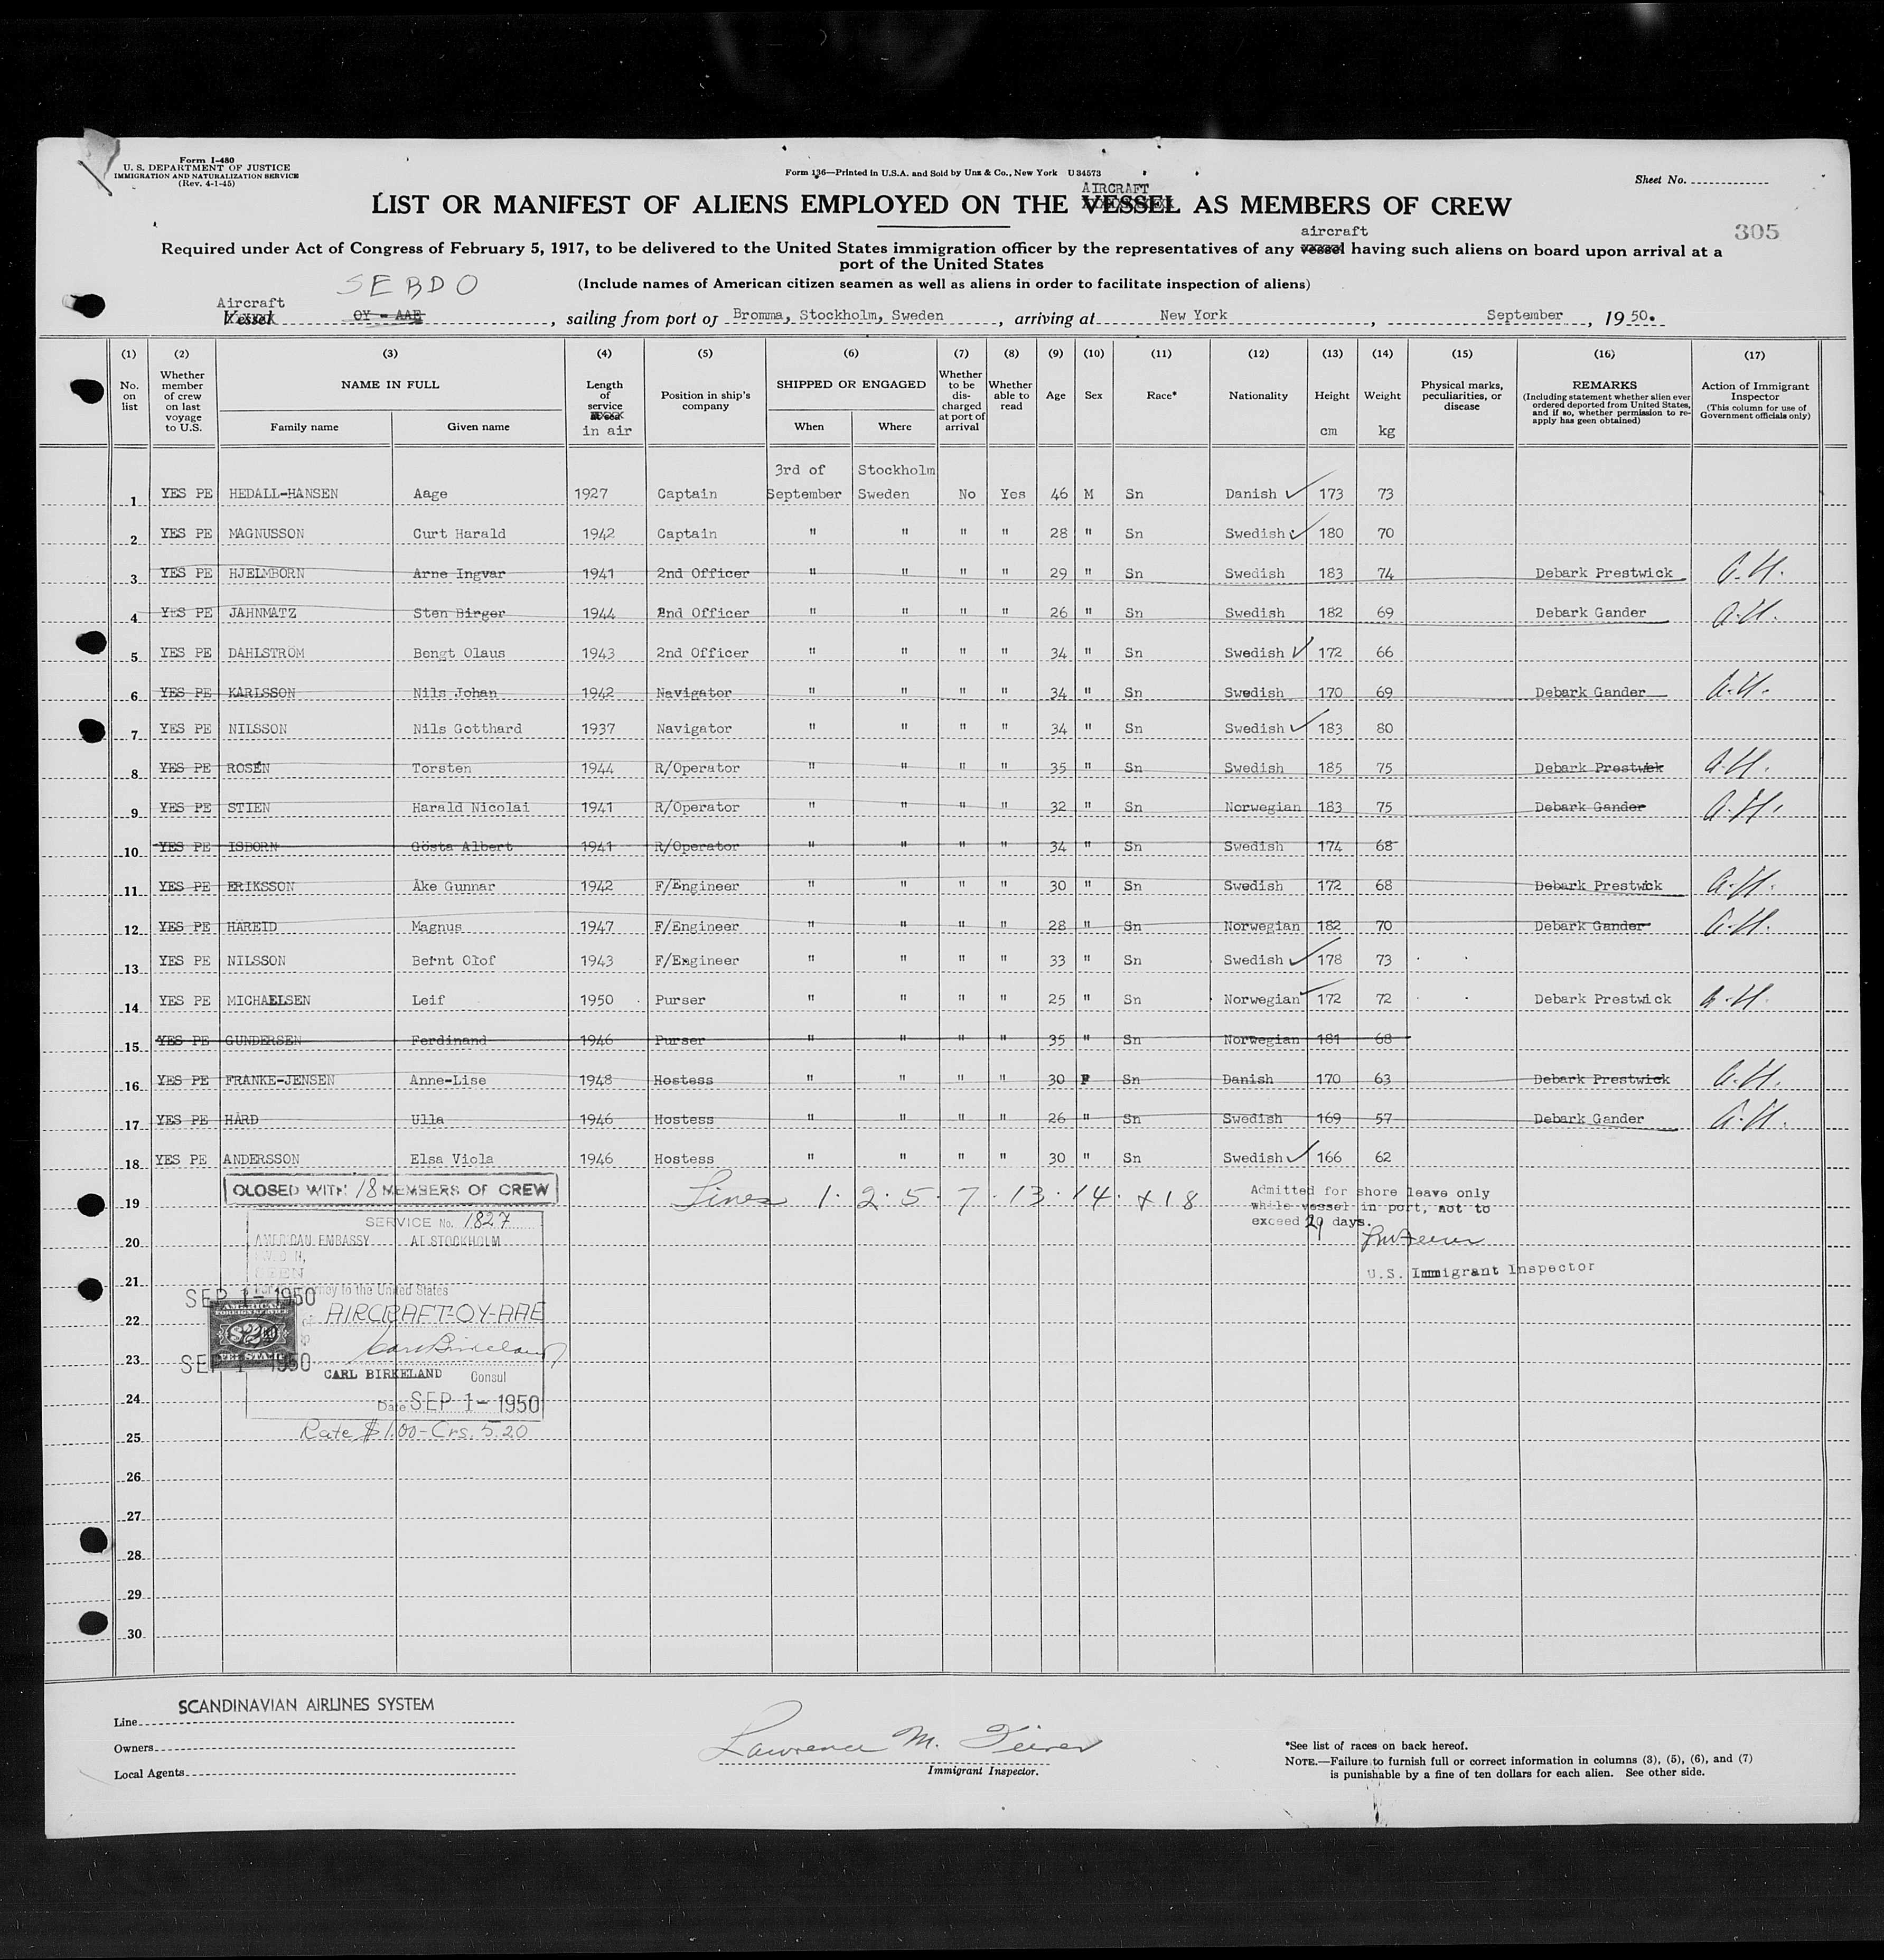 Form I-480
U. S. DEPARTMENT OF JUSTICE
IMMIGRATION AND NATURALIZATION SERVICE
(Rev. 4-1-45)
Form 136—Printed in U.S.A. and Sold by Unz & Co., New York U 34573
Sheet No.
AIRCRAFT
LIST OR MANIFEST OF ALIENS EMPLOYED ON THE VESSEL AS MEMBERS OF CREW
305
aircraft
Required under Act of Congress of February 5, 1917, to be delivered to the United States immigration officer by the representatives of any vessel having such aliens on board upon arrival at a
port of the United States
(Include names of American citizen seamen as well as aliens in order to facilitate inspection of aliens)
SEBDO
Aircraft
Vessel OY - AAE, sailing from port of Bromma, Stockholm, Sweden, arriving at New York, September, 19 50.
(1) (2) (3) (4) (5) (6) (7) (8) (9) (10) (11) (12) (13) (14) (15) (16) (17)
No. on list
Whether member of crew on last voyage to U.S.
NAME IN FULL
Family name Given name
Length of service at sea in air
Position in ship's company
SHIPPED OR ENGAGED
When Where
Whether to be discharged at port of arrival
Whether able to read
Age
Sex
Race*
Nationality
Height cm
Weight kg
Physical marks, peculiarities, or disease
REMARKS
(Including statement whether alien ever ordered deported from United States, and if so, whether permission to re-apply has geen obtained)
Action of Immigrant Inspector
(This column for use of Government officials only)
3rd of Stockholm
1 YES PE HEDALL-HANSEN Aage 1927 Captain September Sweden No Yes 46 M Sn Danish ✓ 173 73
2 YES PE MAGNUSSON Curt Harald 1942 Captain " " " " 28 " Sn Swedish ✓ 180 70
3 YES PE HJELMBORN Arne Ingvar 1941 2nd Officer " " " " 29 " Sn Swedish 183 74 Debark Prestwick A.H.
4 YES PE JAHNMATZ Sten Birger 1944 2nd Officer " " " " 26 " Sn Swedish 182 69 Debark Gander A.H.
5 YES PE DAHLSTRÖM Bengt Olaus 1943 2nd Officer " " " " 34 " Sn Swedish ✓ 172 66
6 YES PE KARLSSON Nils Johan 1942 Navigator " " " " 34 " Sn Swedish 170 69 Debark Gander A.H.
7 YES PE NILSSON Nils Gotthard 1937 Navigator " " " " 34 " Sn Swedish ✓ 183 80
8 YES PE ROSÉN Torsten 1944 R/Operator " " " " 35 " Sn Swedish 185 75 Debark Prestwick A.H.
9 YES PE STIEN Harald Nicolai 1941 R/Operator " " " " 32 " Sn Norwegian 183 75 Debark Gander A.H.
10 YES PE ISBORN Gösta Albert 1941 R/Operator " " " " 34 " Sn Swedish 174 68
11 YES PE ERIKSSON Åke Gunnar 1942 F/Engineer " " " " 30 " Sn Swedish 172 68 Debark Prestwick A.H.
12 YES PE HAREID Magnus 1947 F/Engineer " " " " 28 " Sn Norwegian 182 70 Debark Gander A.H.
13 YES PE NILSSON Bernt Olof 1943 F/Engineer " " " " 33 " Sn Swedish ✓ 178 73
14 YES PE MICHAELSEN Leif 1950 Purser " " " " 25 " Sn Norwegian ✓ 172 72 Debark Prestwick A.H.
15 YES PE GUNDERSEN Ferdinand 1946 Purser " " " " 35 " Sn Norwegian 181 68
16 YES PE FRANKE-JENSEN Anne-Lise 1948 Hostess " " " " 30 F Sn Danish 170 63 Debark Prestwick A.H.
17 YES PE HÅRD Ulla 1946 Hostess " " " " 26 " Sn Swedish 169 57 Debark Gander A.H.
18 YES PE ANDERSSON Elsa Viola 1946 Hostess " " " " 30 " Sn Swedish ✓ 166 62
CLOSED WITH 18 MEMBERS OF CREW
19 Lines 1. 2. 5. 7. 13. 14. + 18
Admitted for shore leave only
while vessel in port, not to
exceed 29 days.
U.S. Immigrant Inspector
SERVICE No. 1827
20 AMERICAN EMBASSY AT STOCKHOLM
21
journey to the United States
SEP 1 - 1950
22 AIRCRAFT-OY-AAE
AMERICAN
FOREIGN SERVICE
FEE STAMP
Carl Birkeland
23 SEP 1 - 1950
CARL BIRKELAND Consul
24 Date SEP 1 - 1950
25 Rate $1.00 - Crs. 5.20
26
27
28
29
30
Line SCANDINAVIAN AIRLINES SYSTEM
Owners
Local Agents
Lawrence M. Feirer
Immigrant Inspector.
*See list of races on back hereof.
NOTE.—Failure to furnish full or correct information in columns (3), (5), (6), and (7)
is punishable by a fine of ten dollars for each alien. See other side.